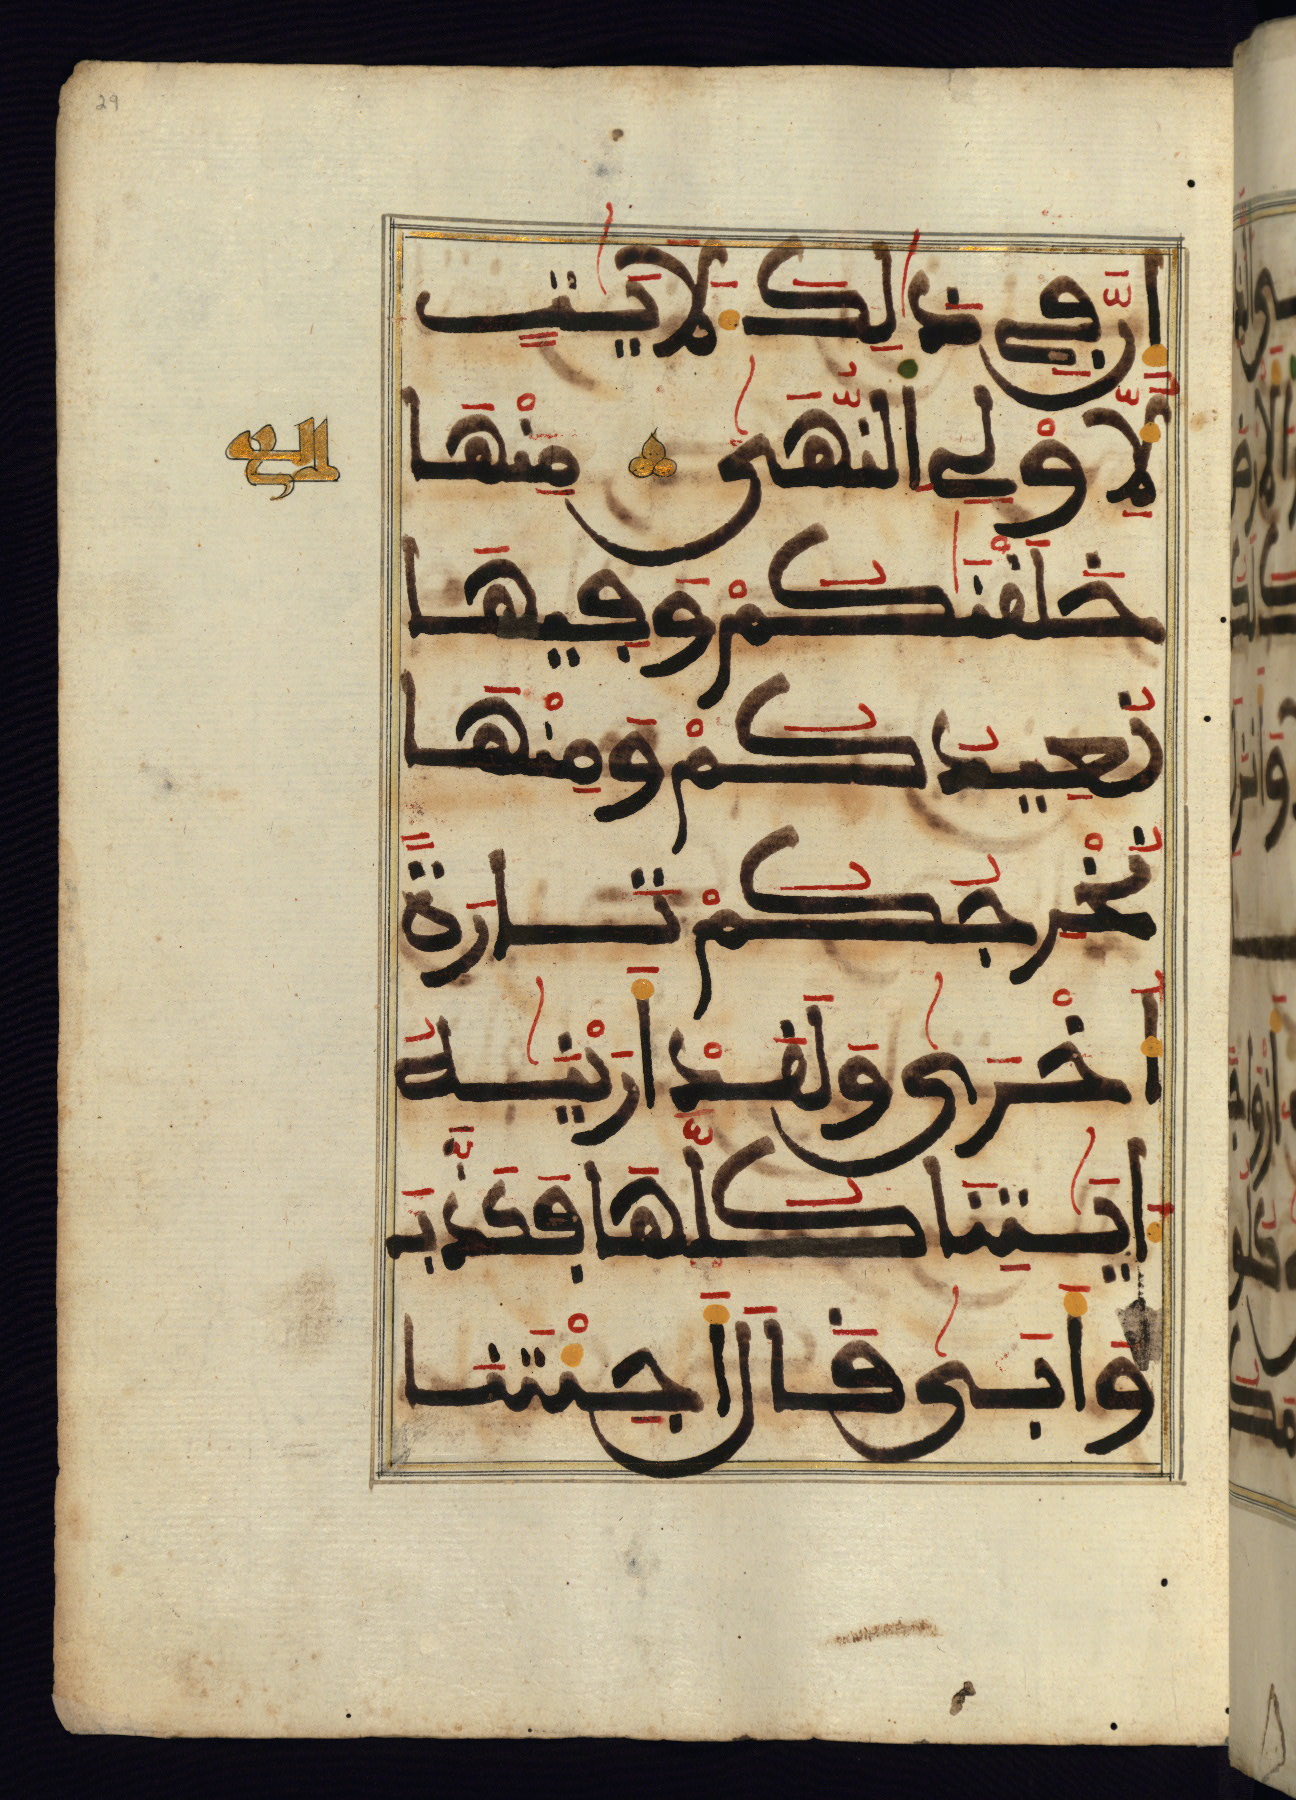 29
إِنَّ فِي ذَٰلِكَ لَأٓيَٰتٍ
لِّأُوْلِي النُّهَىٰ مِنْهَا
خَلَقْنَٰكُمْ وَفِيهَا
نُعِيدُكُمْ وَمِنْهَا
نُخْرِجُكُمْ تَارَةً
أُخْرَىٰ وَلَقَدْ أَرَيْنَٰهُ
ءَايَٰتِنَا كُلَّهَا فَكَذَّبَ
وَأَبَىٰ قَالَ أَجِئْتَنَا